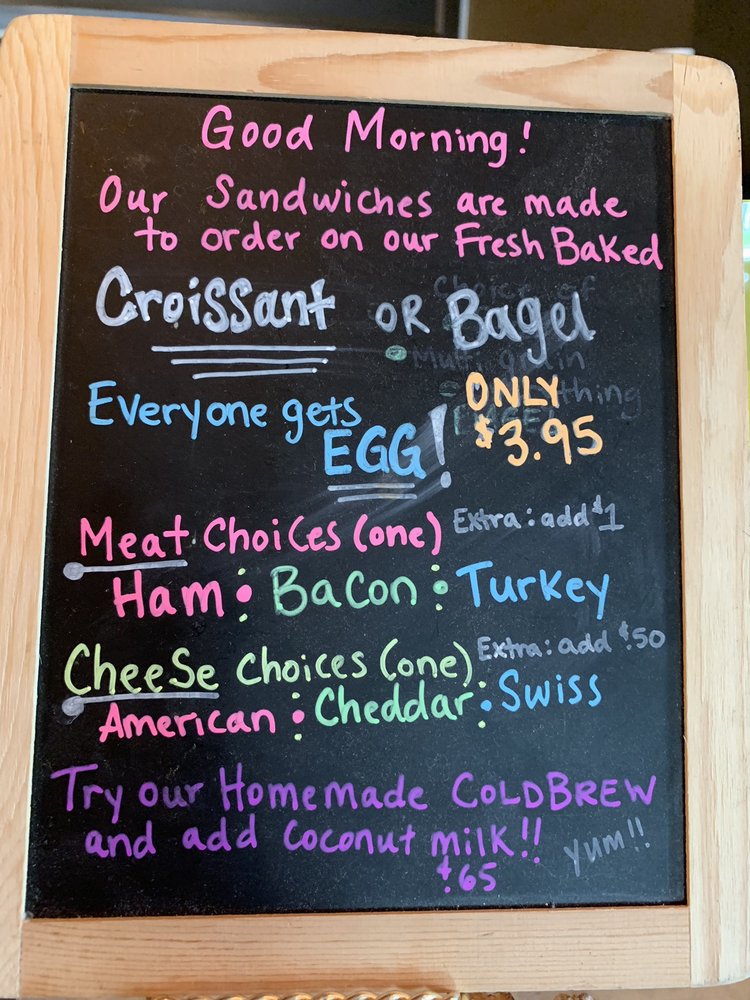 Good Morning!
Our Sandwiches are made
to order on our Fresh Baked
Croissant OR Bagel
Choice of
Multi grain
Everyone gets
EGG!
ONLY
$3.95
BAGEL
Meat Choices (one) Extra: add $1
Ham : Bacon : Turkey
Cheese Choices (one) Extra: add $.50
American : Cheddar : Swiss
Try our Homemade COLDBREW
and add Coconut milk!! yum!!
$.65